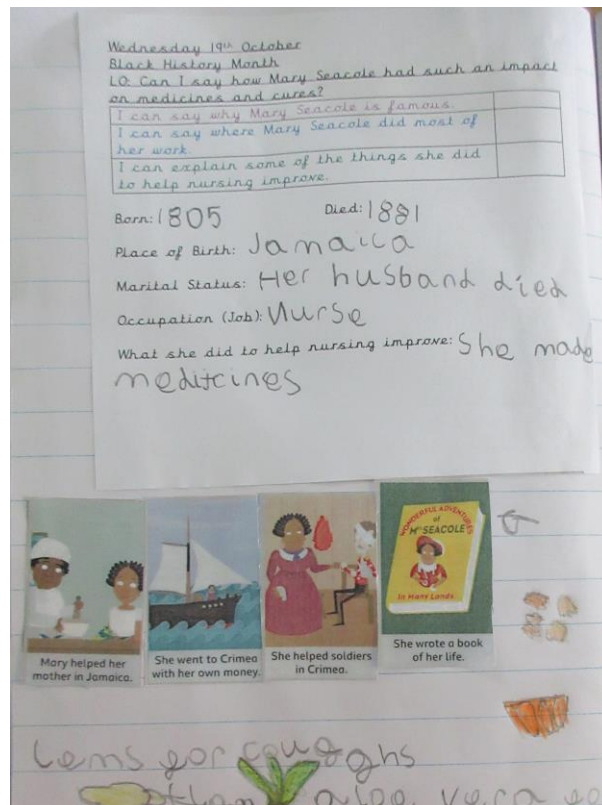 Wednesday 19th October
Black History Month
LO: Can I say how Mary Seacole had such an impact
on medicines and cures?
I can say why Mary Seacole is famous.
I can say where Mary Seacole did most of
her work.
I can explain some of the things she did
to help nursing improve.
Born: 1805 Died: 1881
Place of Birth: Jamaica
Marital Status: Her husband died
Occupation (Job): Nurse
What she did to help nursing improve: She made
meditcines
WONDERFUL ADVENTURES
of
Mrs SEACOLE
In Many Lands
Mary helped her
mother in Jamaica.
She went to Crimea
with her own money.
She helped soldiers
in Crimea.
She wrote a book
of her life.
for coughs
aloe vera